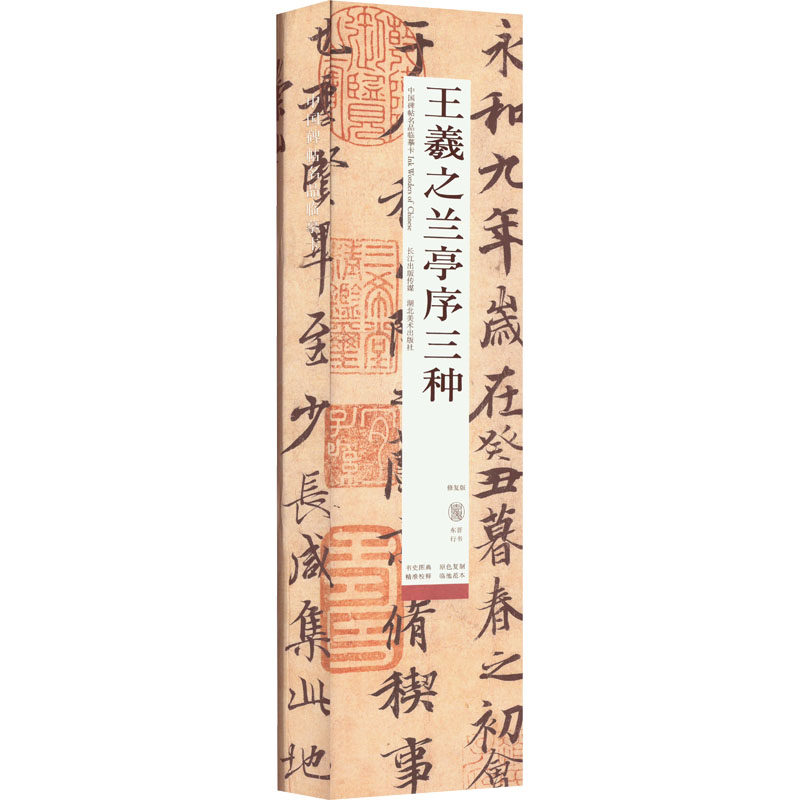 永和九年歲在癸丑暮春之初會
王羲之兰亭序三种
中国碑帖名品临摹卡 Ink Wonders of Chinese
长江出版传媒 湖北美术出版社
修复版
东晋
行书
书史图典 原色复制
精准校释 临池范本
于
脩稧事
三希堂精鑑璽
宜子孫
也羣賢畢至少長咸集此地
中国碑帖名品临摹卡